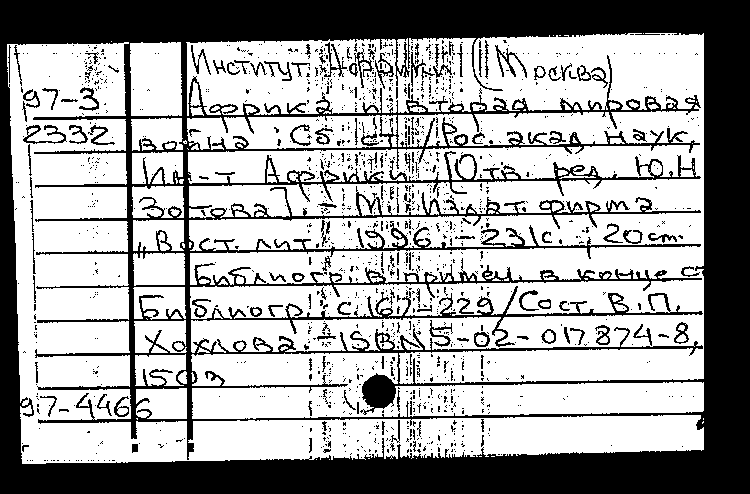 Институт Африки (Москва)
97-3 Африка и вторая мировая
2332 война : Сб. ст. / Рос. акад. наук,
Ин-т Африки ; [Отв. ред. Ю.Н
Зотова]. - М. Издат. фирма
„Вост. лит., 1996. - 231с. ; 20 см.
Библиогр. в примеч. в конце ст
Библиогр.: с. 167-229 / Сост. В.П.
Хохлова. - ISBN 5-02-017874-8,
150э
97-4466